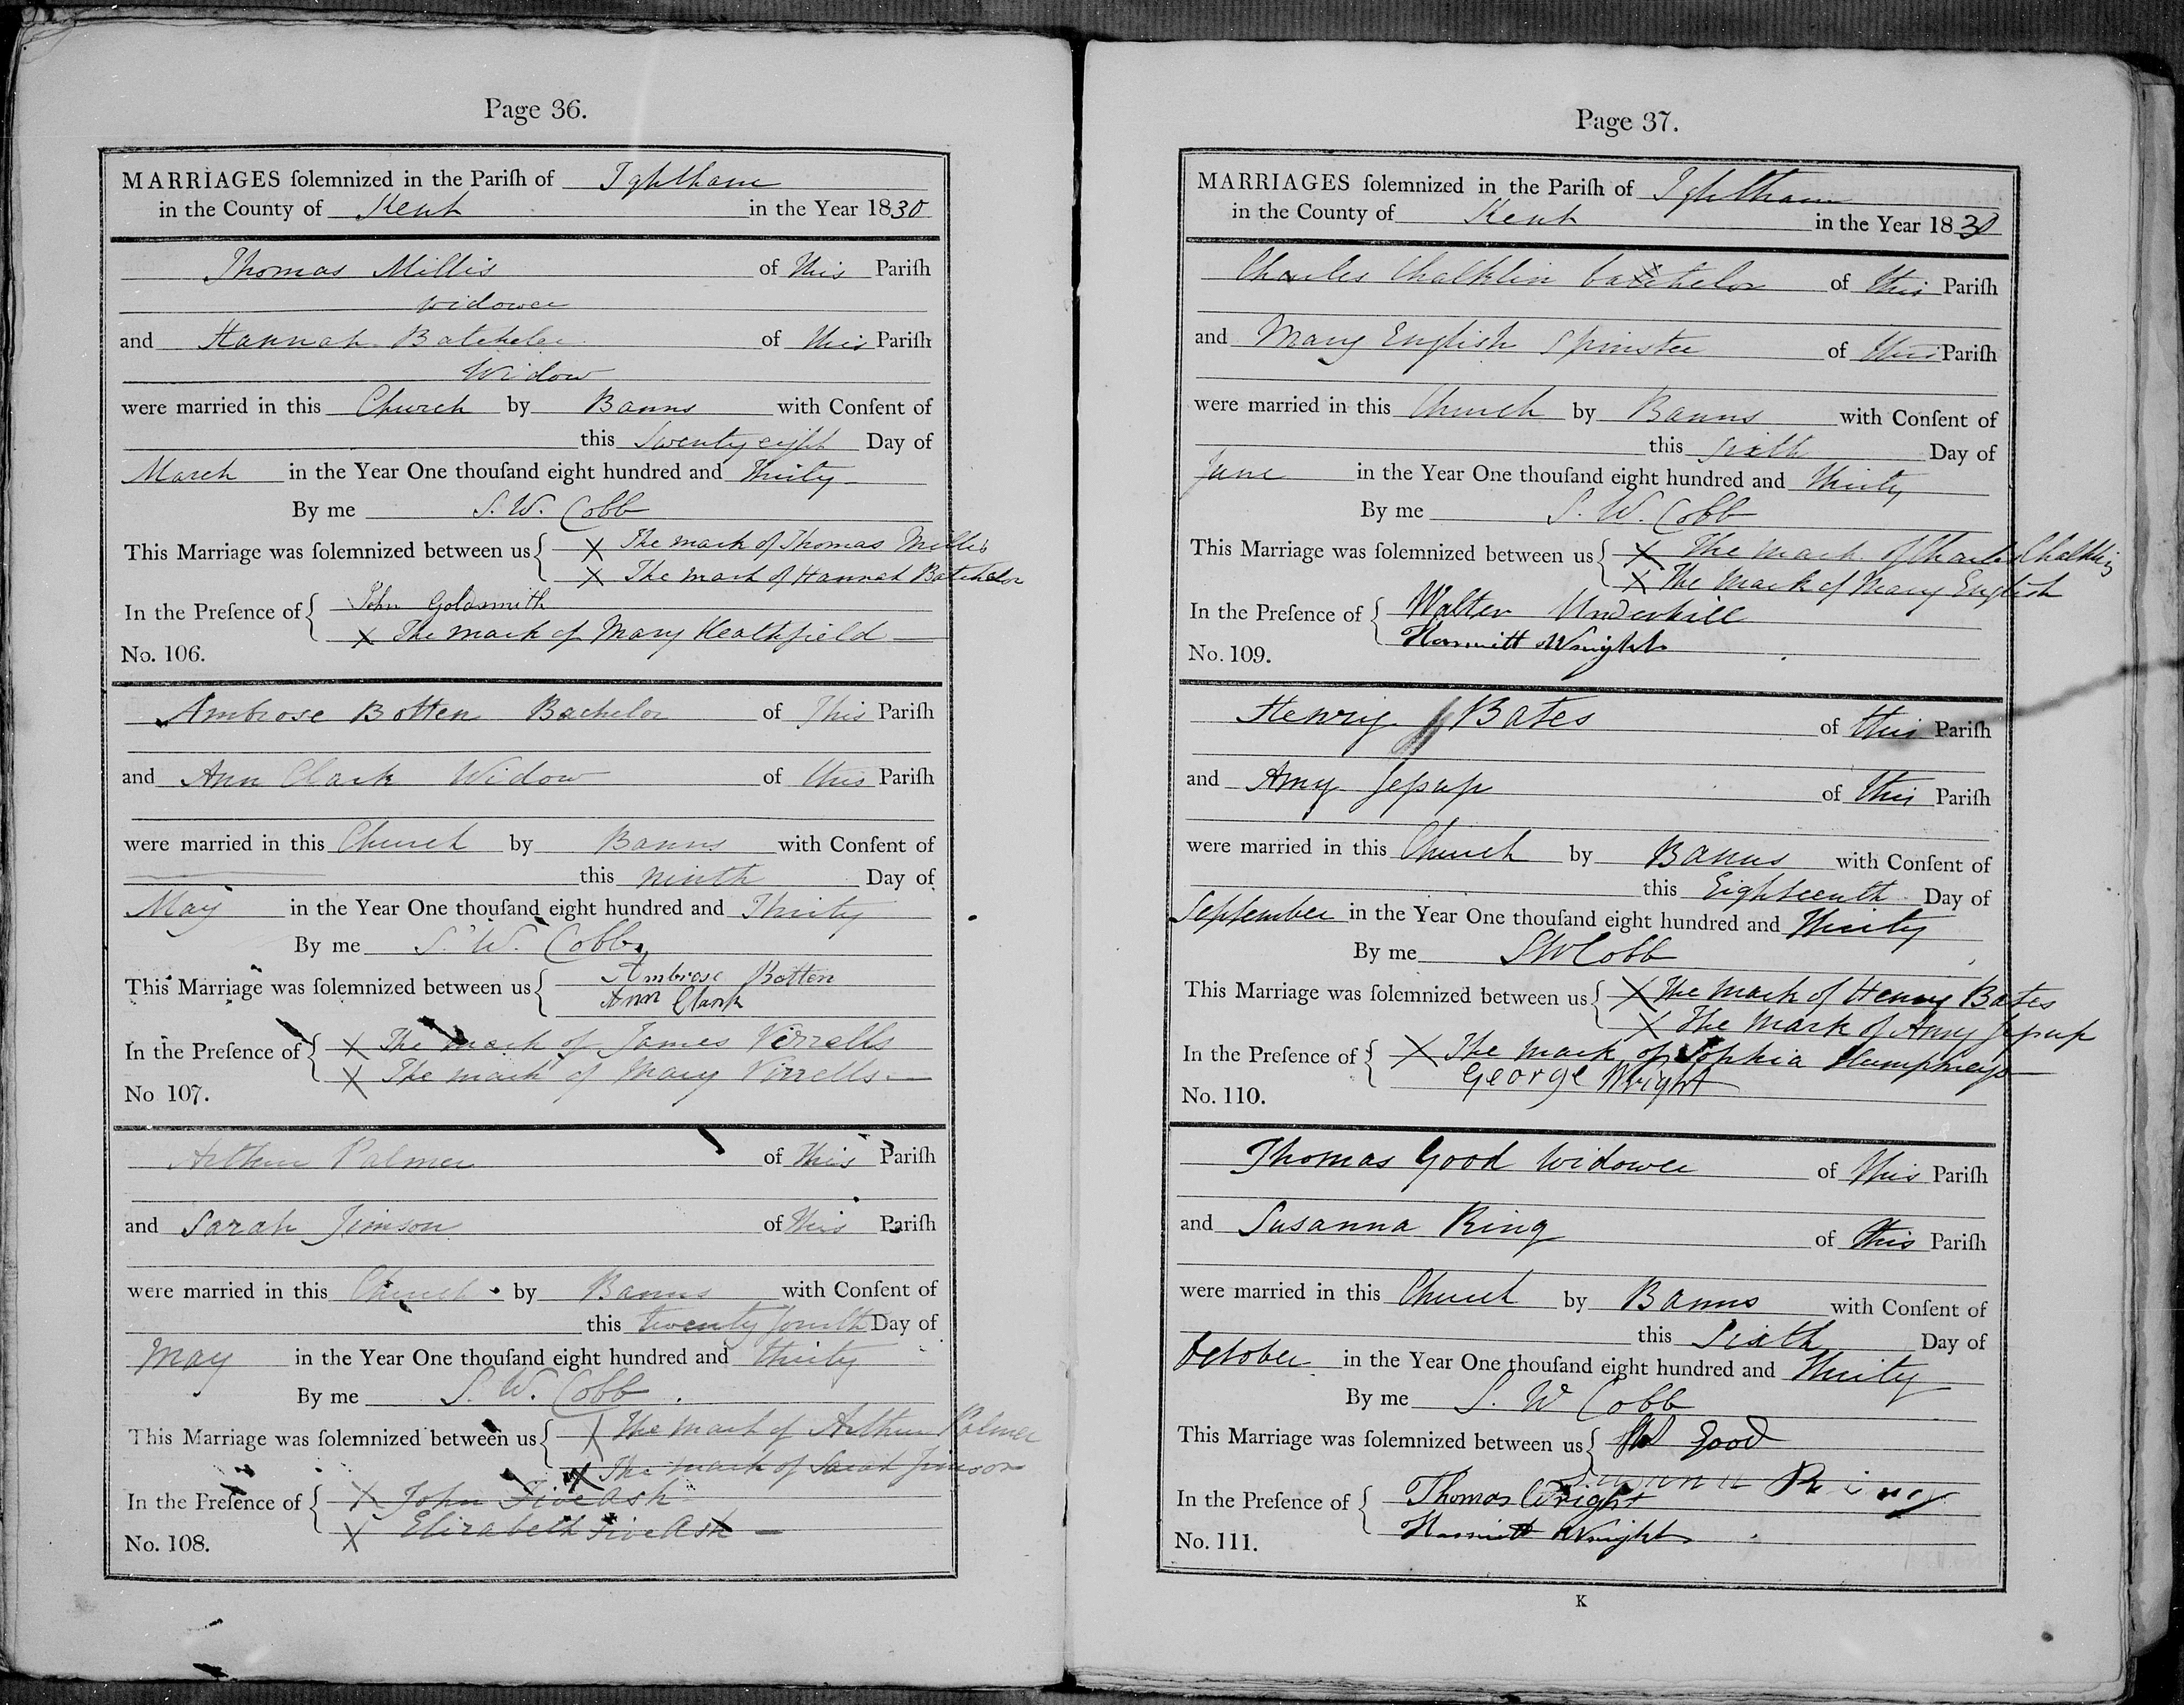 Page 36.
MARRIAGES ſolemnized in the Pariſh of Ightham
in the County of Kent in the Year 1830
Thomas Millis of this Pariſh
widower
and Hannah Batchelor of this Pariſh
Widow
were married in this Church by Banns with Conſent of
this Twenty eight Day of
March in the Year One thouſand eight hundred and Thirty
By me S. W. Cobb
This Marriage was ſolemnized between us { X The mark of Thomas Millis
X The mark of Hannah Batchelor
In the Preſence of { John Goldsmith
X The mark of Mary Heathfield
No. 106.
Ambrose Botten Bachelor of This Pariſh
and Ann Clark Widow of this Pariſh
were married in this Church by Banns with Conſent of
this ninth Day of
May in the Year One thouſand eight hundred and Thirty
By me S. W. Cobb
This Marriage was ſolemnized between us { Ambrose Botten
Ann Clark
In the Preſence of { X The mark of James Virrells
X The mark of Mary Virrells
No 107.
Arthur Palmer of this Pariſh
and Sarah Jimson of this Pariſh
were married in this Church by Banns with Conſent of
this twenty fourth Day of
May in the Year One thouſand eight hundred and thirty
By me S. W. Cobb
This Marriage was ſolemnized between us { X The mark of Arthur Palmer
X The mark of Sarah Jimson
In the Preſence of { X John FiveAsh
X Elizabeth FiveAsh
No. 108.
Page 37.
MARRIAGES ſolemnized in the Pariſh of Ightham
in the County of Kent in the Year 1830
Charles Chalklin batchelor of this Pariſh
and Mary English Spinster of this Pariſh
were married in this Church by Banns with Conſent of
this Sixth Day of
June in the Year One thouſand eight hundred and Thirty
By me S. W. Cobb
This Marriage was ſolemnized between us { X The mark of Charles Chalklin
X The mark of Mary English
In the Preſence of { Walter Underhill
Harriett Wright
No. 109.
Henry Bates of this Pariſh
and Amy Jeſsup of this Pariſh
were married in this Church by Banns with Conſent of
this Eighteenth Day of
September in the Year One thouſand eight hundred and Thirty
By me SWCobb
This Marriage was ſolemnized between us { X The mark of Henry Bates
X The mark of Amy Jeſsup
In the Preſence of { X The mark of Sophia Humphreys
George Wright
No. 110.
Thomas Good Widower of this Pariſh
and Susanna Ring of this Pariſh
were married in this Church by Banns with Conſent of
this Sixth Day of
October in the Year One thouſand eight hundred and Thirty
By me S. W Cobb
This Marriage was ſolemnized between us { Good
Susanna Ring
In the Preſence of { Thomas Wright
Harriett Wright
No. 111.
K